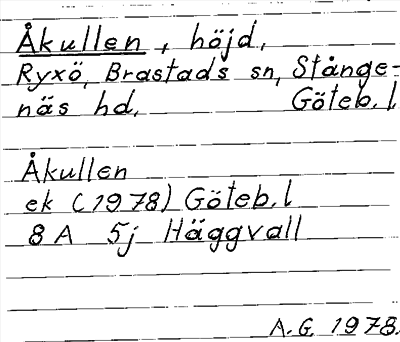 Åkullen, höjd,
Ryxö, Brastads sn, Stånge-
näs hd, Göteb. l
Åkullen
ek (1978) Göteb. l
8 A 5j Häggvall
A. G. 1978.